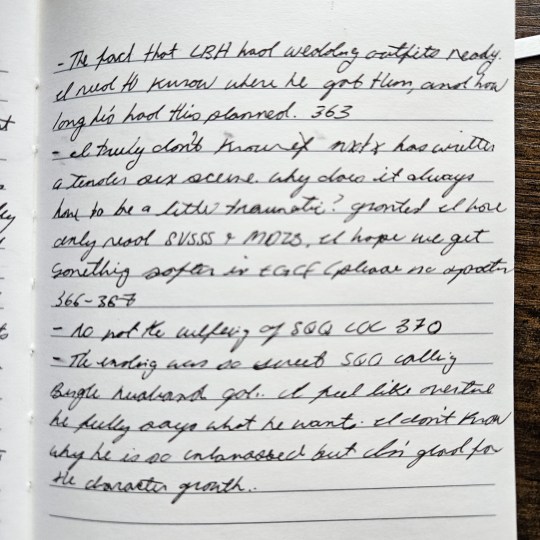 - The fact that LBH had wedding outfits ready.
I need to know where he got them, and how
long he's had this planned. 363
- I truly don't know if mxtx has written
a tender sex scene. why does it always
have to be a little traumatic? granted I have
only read SVSSS + MDZS, I hope we get
something softer in TGCF (please no spoilers
366-367
- No not the wifeing of SQQ LOL 370
- The ending was so sweet SQQ calling
Binghe husband gah.. I feel like overtime
he fully says what he wants. I don't know
why he is so embarrassed but I'm glad for
the character growth.